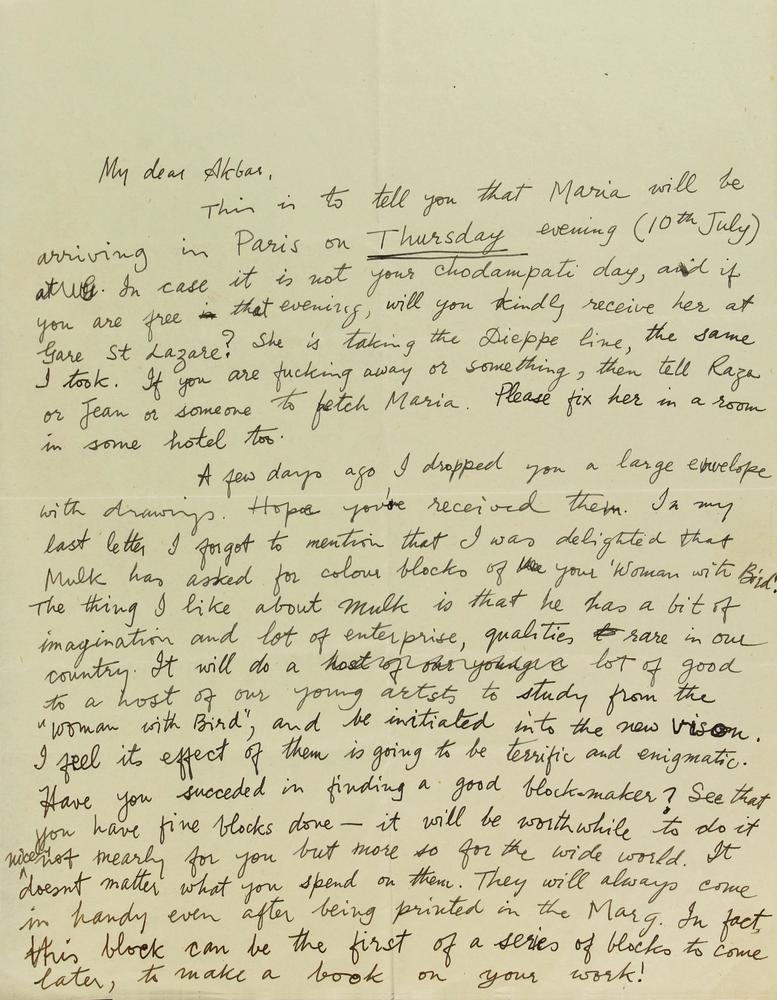 My dear Akbar,
This is to tell you that Maria will be
arriving in Paris on Thursday evening (10th July)
at. In case it is not your chodampati day, and if
you are free that evening, will you kindly receive her at
Gare St Lazare? She is taking the Dieppe line, the same
I took. If you are fucking away or something, then tell Raza
or Jean or someone to fetch Maria. Please fix her in a room
in some hotel too.
A few days ago I dropped you a large envelope
with drawings. Hope you've received them. In my
last letter I forgot to mention that I was delighted that
Mulk has asked for colour blocks of your 'Woman with Bird'.
The thing I like about Mulk is that he has a bit of
imagination and lot of enterprise, qualities rare in our
country. It will do a host of our younger lot of good
to a host of our young artists to study from the
"Woman with Bird", and be initiated into the new vison.
I feel its effect of them is going to be terrific and enigmatic.
Have you succeded in finding a good block-maker? See that
you have fine blocks done — it will be worthwhile to do it
nicely not mearly for you but more so for the wide world. It
doesnt matter what you spend on them. They will always come
in handy even after being printed in the Marg. In fact,
this block can be the first of a series of blocks to come
later, to make a book on your work!